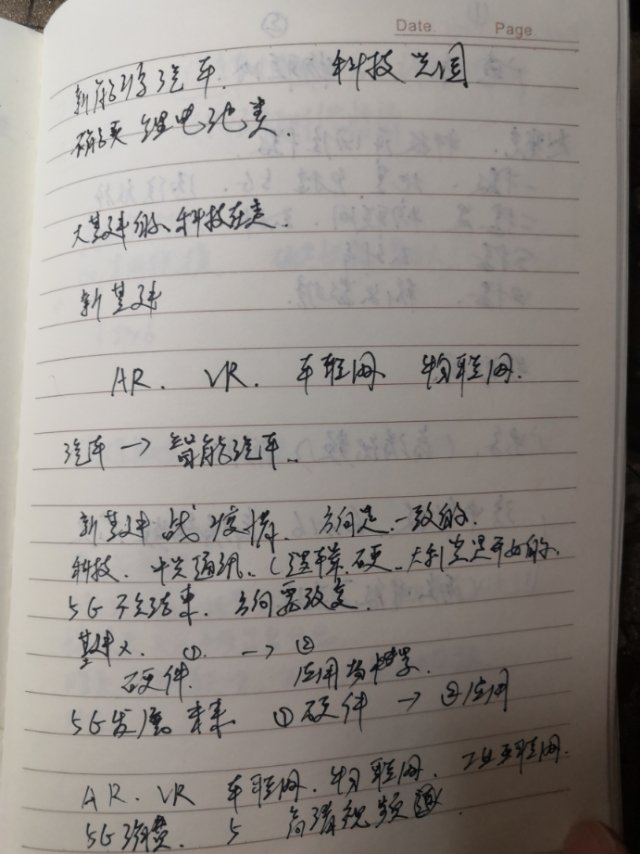 Date. Page
新能源汽车. 科技兴国
锂电池类.
大基建的、科技在类.
新基建
AR. VR. 车联网 物联网.
汽车 → 智能汽车..
新基建 战疫情. 方向是一致的.
科技. 中兴通讯. 硬. 大利 开始的.
5G 不会结束. 方向要改变.
基建 ① → ②
硬件. 应用场景.
5G发展 未来 ① 硬件 → ② 应用
AR. VR 车联网. 物联网. 工业互联网.
5G 高清视频